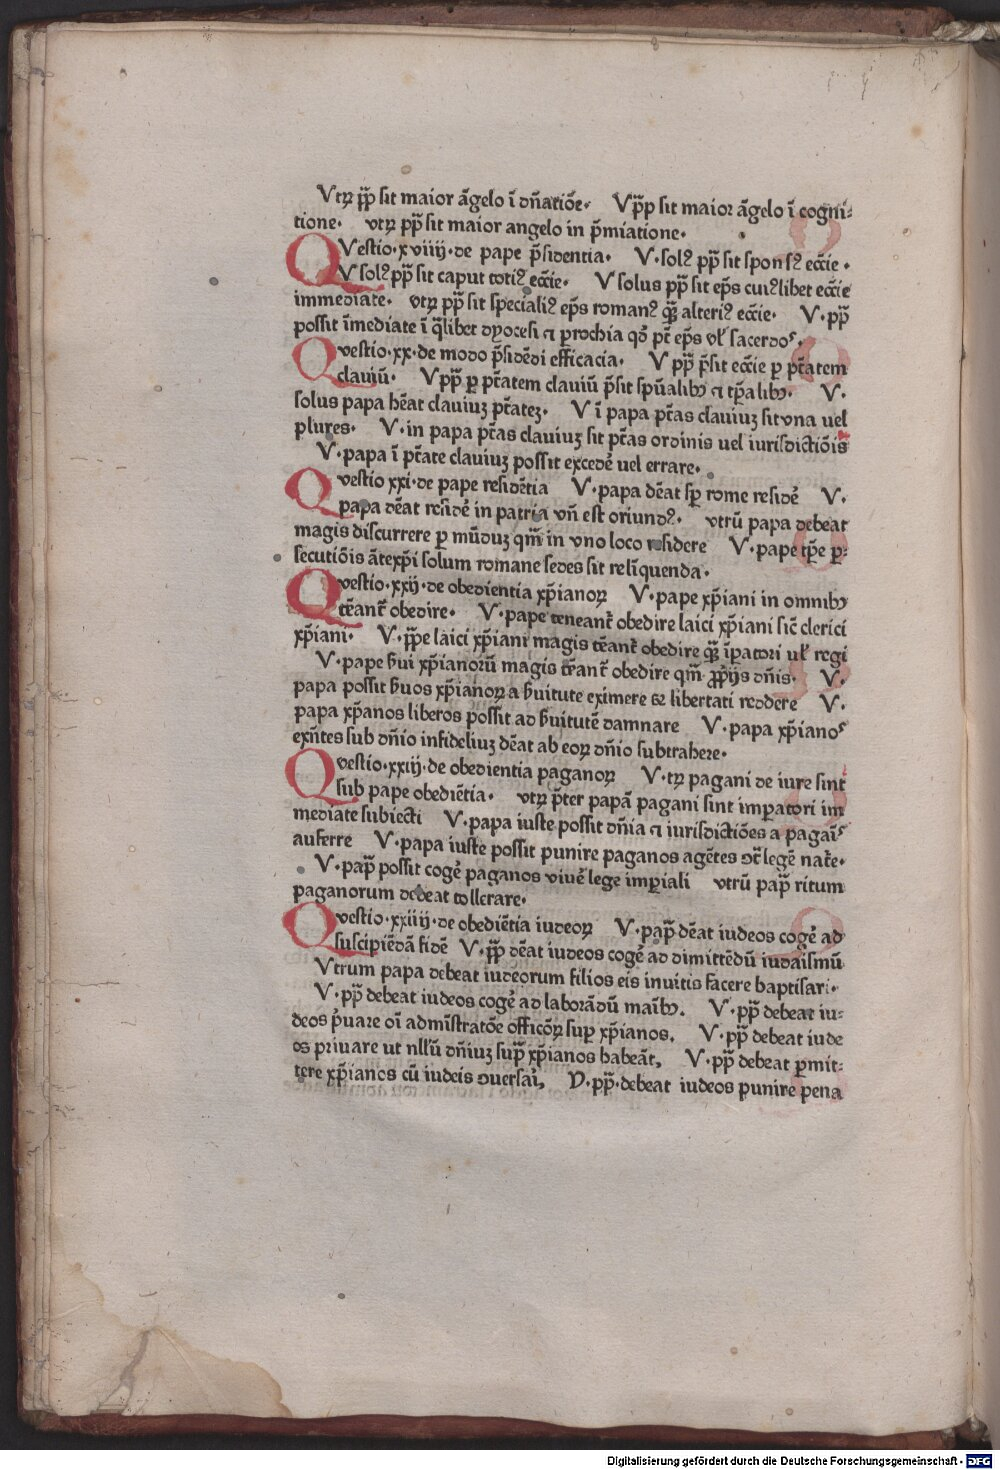 Vtꝝ pp̃ sit maior ãgelo ĩ dñatiõe· Vpp̃ sit maior ãgelo ĩ cogni⸗
tione· vtꝝ pp̃ sit maior angelo in p̃miatione·
QVestio·xviiij·de pape p̃sidentia· V·solꝰ pp̃ sit sponsꝰ ecc̃ie·
V solꝰ pp̃ sit caput totiꝰ ecc̃ie· V solus pp̃ sit ep̃s cuiꝰlibet ecc̃ie
immediate· vtꝝ pp̃ sit specialiꝰ ep̃s romanꝰ qꝫ̃ alteriꝰ ecc̃ie· V·pp̃
possit ĩmediate ĩ q̃libet dyocesi ⁊ ꝑrochia qđ pt̃ ep̃s vꝉ sacerdos·
Qvestio·xx·de modo p̃sidẽdi efficacia· V pp̃ p̃sit ecc̃ie ꝑ ptãtem
clauiũ· Vpp̃ ꝑ ptãtem clauiũ p̃sit spũalibꝫ ⁊ tp̃alibꝫ· V·
solus papa hẽat clauiuꝫ ptãteꝫ· V ĩ papa ptãs clauiuꝫ sit vna uel
plures· V·in papa ptãs clauiuꝫ sit ptãs ordinis uel iurisdictiõis
V·papa ĩ ptãte clauiuꝫ possit excedẽ uel errare·
Qvestio xxi·de pape residẽtia V·papa dẽat sꝑ rome residẽ V·
papa dẽat residẽ in patria vñ est oriundꝰ· vtrũ papa debeat
magis discurrere ꝑ mũduꝫ qm̃ in vno loco residere V·pape tp̃e ꝑ⸗
secutiõis ãtexp̃i solum romane sedes sit relĩquenda·
Qvestio·xxij·de obedientia xp̃ianoꝝ V·pape xp̃iani in omnibꝫ
tẽant̃ obedire· V·pape teneant̃ obedire laici xp̃iani sic̃ clerici
xp̃iani· V·pp̃e laici xp̃iani magis tẽant̃ obedire qꝫ̃ ĩꝑatori uꝉ regi
V·pape ẜui xp̃ianorũ magis tẽant̃ obedire qm̃ ꝓp̃ijs dñis· V·
papa possit ẜuos xp̃ianoꝝ a ẜuitute eximere ⁊ libertati reddere V·
papa xp̃ianos liberos possit ad ẜuitutẽ damnare V·papa xp̃ianos
exñtes sub dñio infideliuꝫ dẽat ab eoꝝ dñio subtrahere·
Qvestio·xxiij·de obedientia paganoꝝ V·tꝝ pagani de iure sint
sub pape obediẽtia· vtꝝ p̃ter papã pagani sint imꝑatori im
mediate subiecti V·papa iuste possit dñia ⁊ iurisdictiões a pagaĩs
auferre V·papa iuste possit punire paganos agẽtes ↄt̃ legẽ nat̃e·
V·pap̃ possit cogẽ paganos viuẽ lege imꝑiali vtrũ pap̃ ritum
paganorum debeat tollerare·
Qvestio·xxiiij·de obediẽtia iudeoꝝ V·pap̃ dẽat iudeos cogẽ ad
suscipiẽdã fidẽ V·pp̃ dẽat iudeos cogẽ ad dimittẽdũ iudaismũ
Vtrum papa debeat iudeorum filios eis inuitis facere baptisari·
V·pp̃ debeat iudeos cogẽ ad laborãdũ maĩbꝫ. V·pp̃ debeat iu⸗
deos p̃uare oĩ admĩstratõe officõꝝ suꝑ xp̃ianos. V·pp̃ debeat iude
os priuare ut nllũ dñiuꝫ sup̃ xp̃ianos habeãt, V·pp̃ debeat ꝑmit⸗
tere xp̃ianos cũ iudeis ↄuersaĩ, V·pp̃·debeat iudeos punire pena
Digitalisierung gefördert durch die Deutsche Forschungsgemeinschaft - DFG